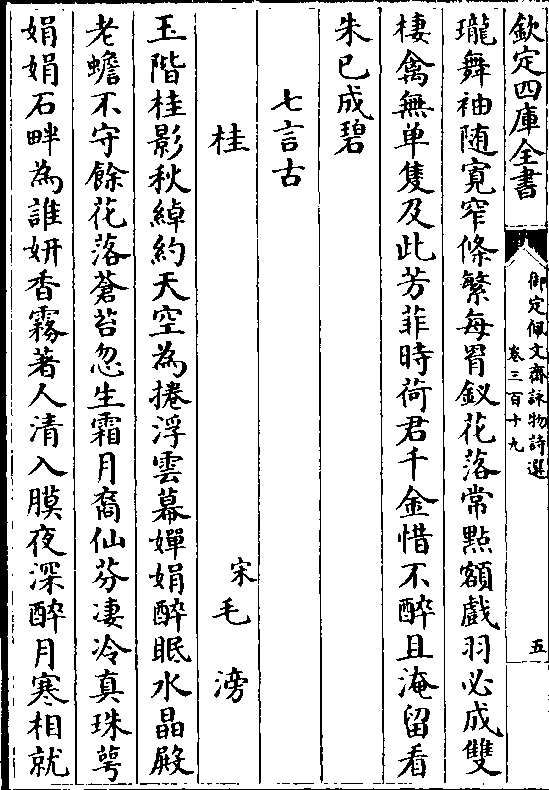 欽定四庫全書
御定佩文齋詠物詩選
卷三百十九
五
瓏舞袖随寛窄條繁每罥釵花落常點額戲羽必成雙
棲禽無单隻及此芳菲時荷君千金惜不醉且淹留看
朱已成碧
七言古
桂
宋毛滂
玉階桂影秋綽約天空為捲浮雲幕嬋娟醉眠水晶殿
老蟾不守餘花落蒼苔忽生霜月裔仙芬凄冷真珠萼
娟娟石畔為誰妍香霧著人清入膜夜深醉月寒相就